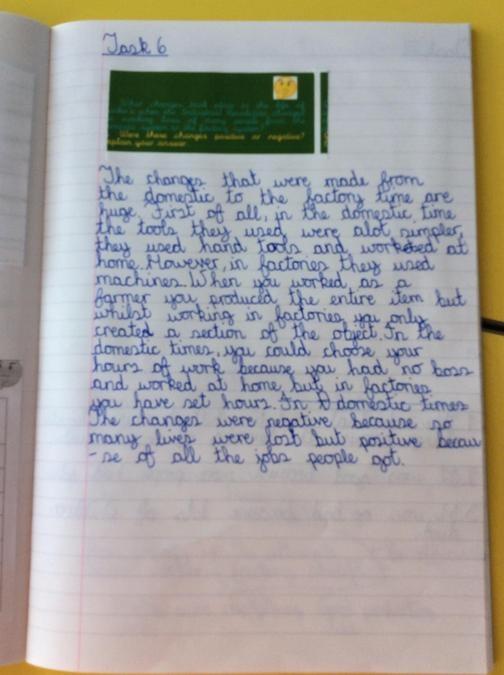 Task 6
What changes took place in the life of
workers when the Industrial Revolution changed
the working lives of many people from the
domestic system to the factory system?
Were these changes positive or negative?
Explain your answer.
The changes that were made from
the domestic to the factory time are
huge. First of all, in the domestic time
the tools they used were alot simpler,
they used hand tools and worked at
home. However, in factories they used
machines. When you worked as a
farmer you produced the entire item but
whilst working in factories you only
created a section of the object. In the
domestic times, you could choose your
hours of work because you had no boss
and worked at home but in factories
you have set hours. In domestic times
The changes were negative because so
many lives were lost but positive becau
-se of all the jobs people got.